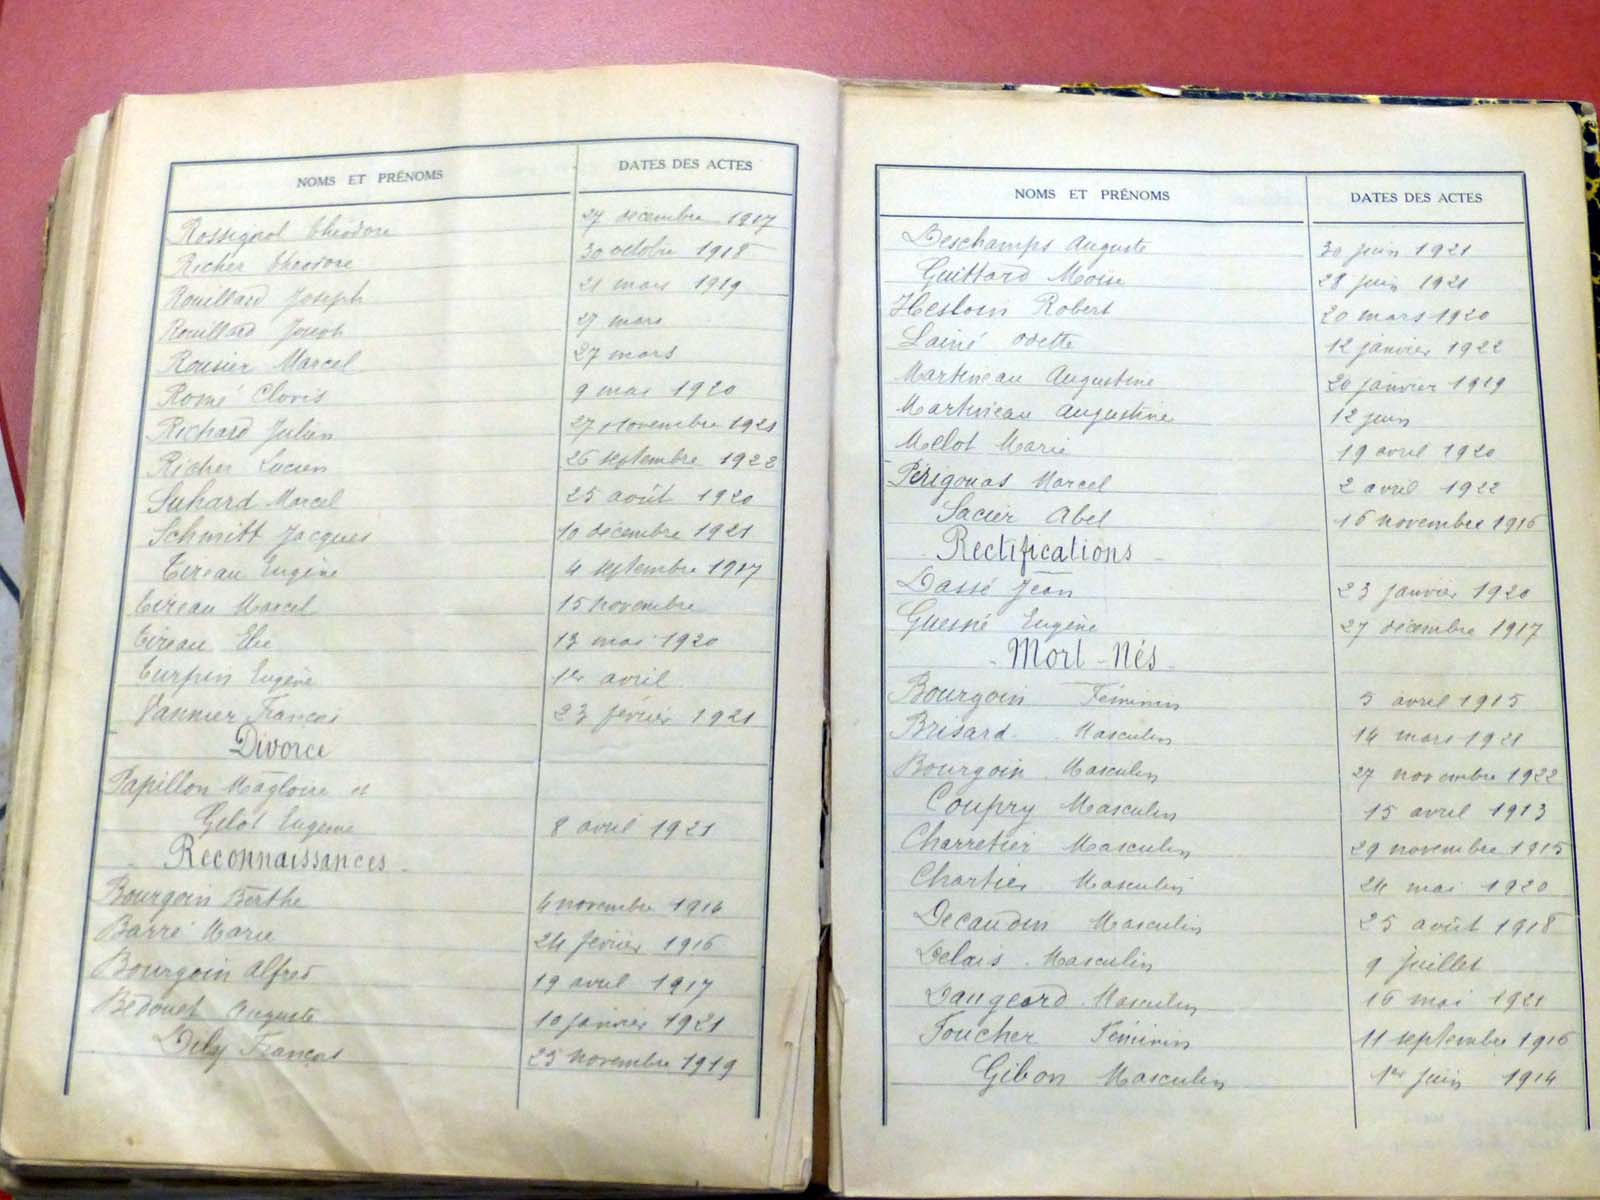 NOMS ET PRÉNOMS DATES DES ACTES
Rossignol Théodore 27 décembre 1917
Richer Théodore 30 octobre 1918
Rouillard Joseph 21 mars 1919
Rouillard Joseph 27 mars
Rousier Marcel 27 mars
Romé Clovis 9 mai 1920
Richard Julien 27 novembre 1921
Richer Lucien 26 septembre 1922
Suhard Marcel 25 août 1920
Schmitt Jacques 10 décembre 1921
Tireau Eugène 4 septembre 1917
Tireau Marcel 15 novembre
Tireau Elie 13 mai 1920
Turpin Eugène 1er avril
Vannier François 23 février 1921
Divorce
Papillon Magloire et
Gelot Eugénie 8 avril 1921
Reconnaissances
Bourgoin Berthe 4 novembre 1914
Barré Marie 24 février 1916
Bourgoin Alfred 19 avril 1917
Bedouet Auguste 10 janvier 1921
Dily François 25 novembre 1919
NOMS ET PRÉNOMS DATES DES ACTES
Deschamps Auguste 30 juin 1921
Guittard Moïse 28 juin 1921
Hesloin Robert 20 mars 1920
Lainé Odette 12 janvier 1922
Martineau Augustine 20 janvier 1919
Martineau Augustine 12 juin
Melot Marie 19 avril 1920
Périgouas Marcel 2 avril 1922
Sacier Abel 16 novembre 1916
Rectifications
Dassé Jean 23 janvier 1920
Guesné Eugène 27 décembre 1917
Mort-Nés
Bourgoin Féminin 5 avril 1915
Brisard Masculin 14 mars 1921
Bourgoin Masculin 27 novembre 1922
Coupry Masculin 15 avril 1913
Charretier Masculin 29 novembre 1915
Chartier Masculin 24 mai 1920
Decaudin Masculin 25 août 1918
Delais Masculin 9 juillet
Daugeard Masculin 16 mai 1921
Foucher Féminin 11 septembre 1916
Gibon Masculin 1er juin 1914